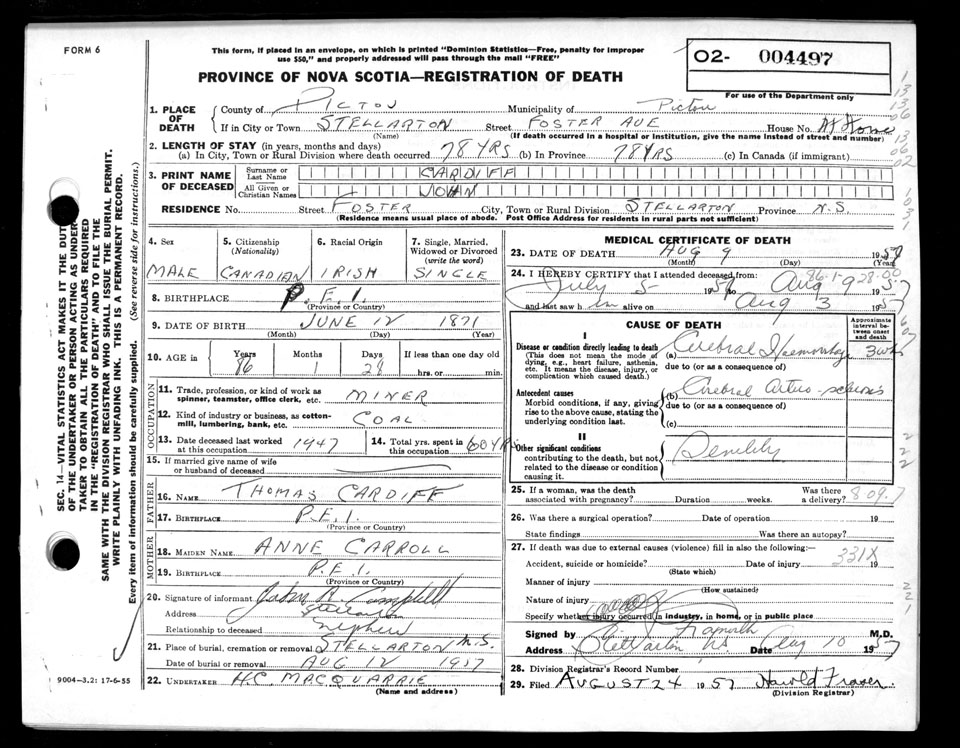 FORM 6
This form, if placed in an envelope, on which is printed "Dominion Statistics—Free, penalty for improper
use $50," and properly addressed will pass through the mail "FREE"
PROVINCE OF NOVA SCOTIA—REGISTRATION OF DEATH
02- 004497
For use of the Department only
1. PLACE OF DEATH
County of PICTOU Municipality of Pictou
If in City or Town STELLARTON Street FOSTER AVE House No. At Home
(Name) (If death occurred in a hospital or institution, give the name instead of street and number)
2. LENGTH OF STAY (in years, months and days)
(a) In City, Town or Rural Division where death occurred 78 YRS (b) In Province 78 YRS (c) In Canada (if immigrant)
3. PRINT NAME OF DECEASED
Surname or Last Name CARDIFF
All Given or Christian Names JOHN
RESIDENCE No. Street FOSTER City, Town or Rural Division STELLARTON Province N.S.
(Residence means usual place of abode. Post Office Address for residents in rural parts not sufficient)
4. Sex MALE
5. Citizenship (Nationality) CANADIAN
6. Racial Origin IRISH
7. Single, Married, Widowed or Divorced (write the word) SINGLE
8. BIRTHPLACE P.E.I.
(Province or Country)
9. DATE OF BIRTH JUNE 12 1871
(Month) (Day) (Year)
10. AGE in Years 86 Months 1 Days 28 If less than one day old hrs. or min.
OCCUPATION
11. Trade, profession, or kind of work as spinner, teamster, office clerk, etc. MINER
12. Kind of industry or business, as cotton-mill, lumbering, bank, etc. COAL
13. Date deceased last worked at this occupation 1947
14. Total yrs. spent in this occupation 60 YRS
15. If married give name of wife or husband of deceased
FATHER
16. NAME THOMAS CARDIFF
17. BIRTHPLACE P.E.I.
(Province or Country)
MOTHER
18. MAIDEN NAME ANNE CARROLL
19. BIRTHPLACE P.E.I.
(Province or Country)
20. Signature of informant John A. Campbell
Address Stellarton
Relationship to deceased Nephew
21. Place of burial, cremation or removal STELLARTON N.S.
Date of burial or removal AUG 12 1957
22. UNDERTAKER H.C. MACQUARRIE
(Name and address)
MEDICAL CERTIFICATE OF DEATH
23. DATE OF DEATH AUG 9 1957
(Month) (Day) (Year)
24. I HEREBY CERTIFY that I attended deceased from:
July 5 1957 to Aug 9 1957
86-1-28-00
and last saw h im alive on Aug 3 1957
CAUSE OF DEATH
Approximate interval between onset and death
I
Disease or condition directly leading to death
(This does not mean the mode of dying, e.g., heart failure, asthenia, etc. It means the disease, injury, or complication which caused death.)
(a) Cerebral Haemorrhage 3 wks
due to (or as a consequence of)
Antecedent causes
Morbid conditions, if any, giving rise to the above cause, stating the underlying condition last.
(b) Cerebral Arterio-sclerosis
due to (or as a consequence of)
(c)
II
Other significant conditions
contributing to the death, but not related to the disease or condition causing it.
Senility
25. If a woman, was the death associated with pregnancy? Duration weeks. Was there a delivery?
809.7
26. Was there a surgical operation? Date of operation 19
State findings Was there an autopsy?
27. If death was due to external causes (violence) fill in also the following:
331X
Accident, suicide or homicide? Date of injury 19
(State which)
Manner of injury
(How sustained)
Nature of injury
Specify whether injury occurred in industry, in home, or in public place
Signed by M.D.
Address Stellarton NS Date Aug 10 1957
28. Division Registrar's Record Number
29. Filed AUGUST 24 1957 Harold Fraser
(Division Registrar)
SEC. 14—VITAL STATISTICS ACT MAKES IT THE DUTY
OF THE UNDERTAKER OR PERSON ACTING AS UNDER
TAKER TO OBTAIN ALL THE PARTICULARS REQUIRED
IN THE "REGISTRATION OF DEATH" AND TO FILE THE
SAME WITH THE DIVISION REGISTRAR WHO SHALL ISSUE THE BURIAL PERMIT.
WRITE PLAINLY WITH UNFADING INK. THIS IS A PERMANENT RECORD.
Every item of information should be carefully supplied. (See reverse side for instructions.)
9004-3.2: 17-6-55